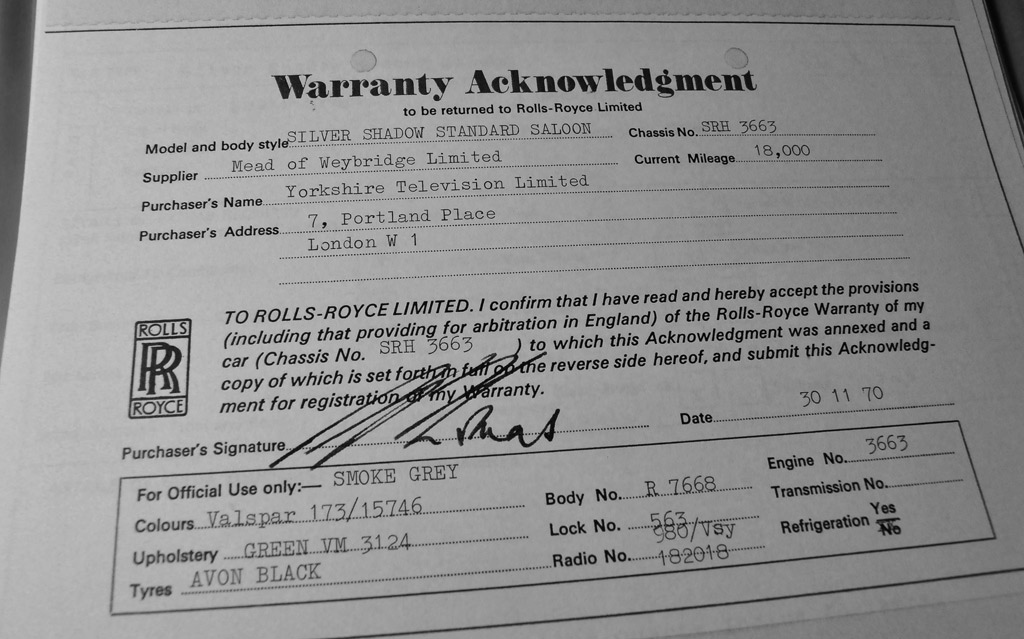 Warranty Acknowledgment
to be returned to Rolls-Royce Limited
Model and body style SILVER SHADOW STANDARD SALOON Chassis No. SRH 3663
Supplier Mead of Weybridge Limited Current Mileage 18,000
Purchaser's Name Yorkshire Television Limited
Purchaser's Address 7, Portland Place
London W 1
TO ROLLS-ROYCE LIMITED. I confirm that I have read and hereby accept the provisions
(including that providing for arbitration in England) of the Rolls-Royce Warranty of my
car (Chassis No. SRH 3663 ) to which this Acknowledgment was annexed and a
copy of which is set forth in full on the reverse side hereof, and submit this Acknowledg-
ment for registration of my Warranty.
ROLLS
RR
ROYCE
Purchaser's Signature Date 30 11 70
For Official Use only:— SMOKE GREY Engine No. 3663
Colours Valspar 173/15746 Body No. R 7668 Transmission No.
Upholstery GREEN VM 3124 Lock No. 563 Refrigeration Yes
No
980/Vsy
Tyres AVON BLACK Radio No. 182018